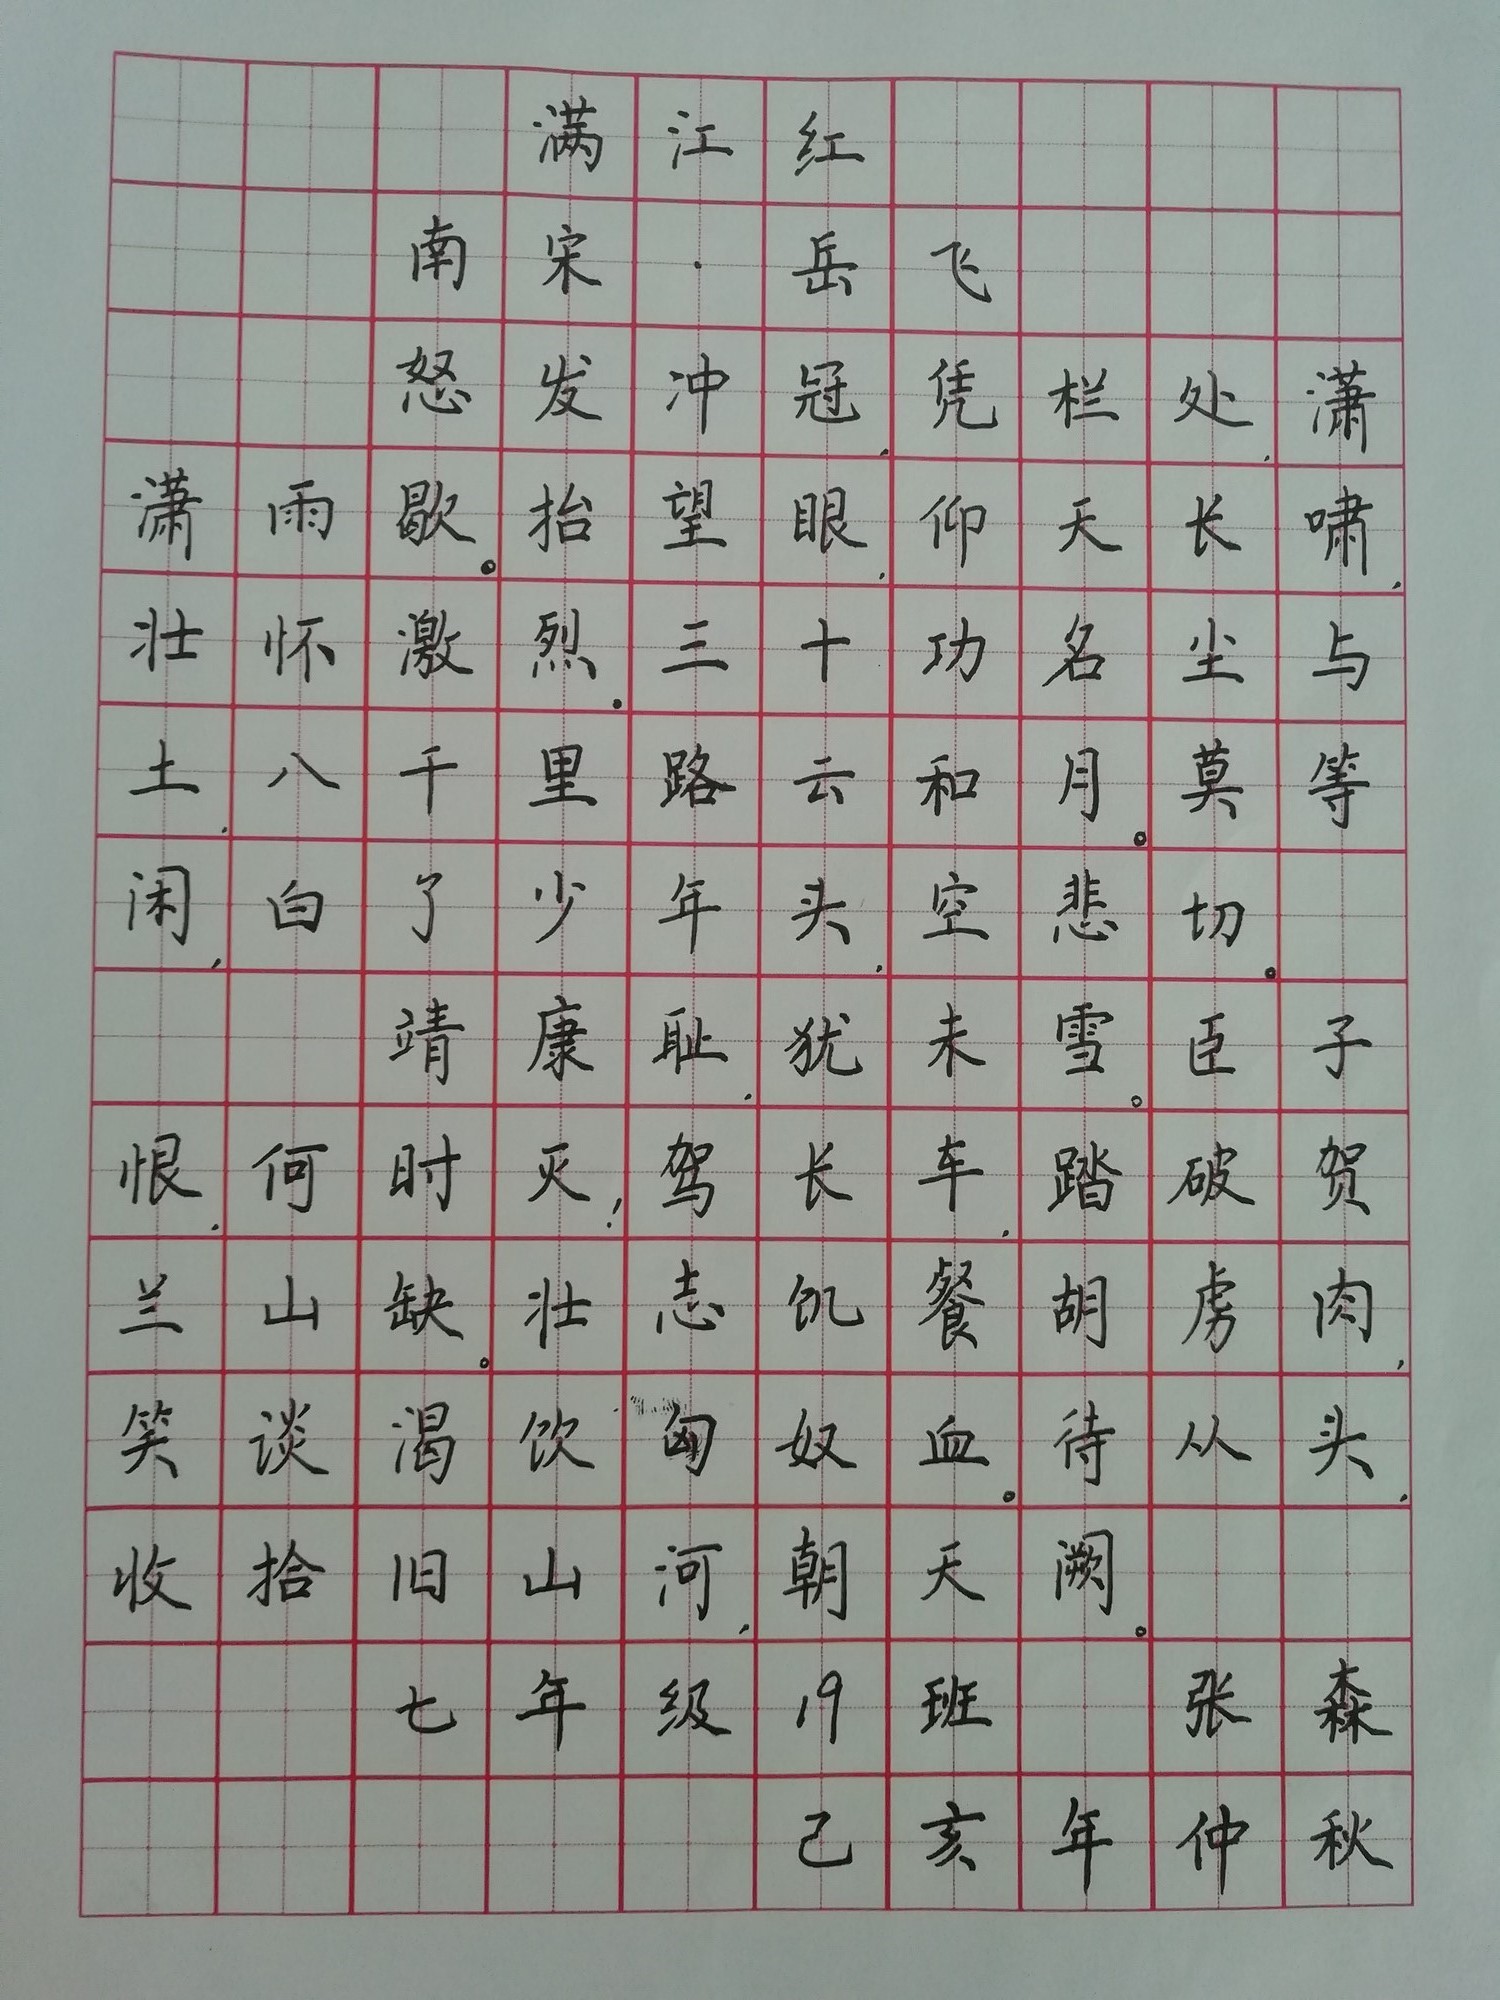 满江红
南宋·岳飞
怒发冲冠,凭栏处,潇
潇雨歇。抬望眼,仰天长啸,
壮怀激烈.三十功名尘与
土,八千里路云和月。莫等
闲,白了少年头,空悲切。
靖康耻,犹未雪。臣子
恨,何时灭!驾长车,踏破贺
兰山缺。壮志饥餐胡虏肉,
笑谈渴饮匈奴血。待从头,
收拾旧山河,朝天阙。
七年级19班 张森
己亥年仲秋